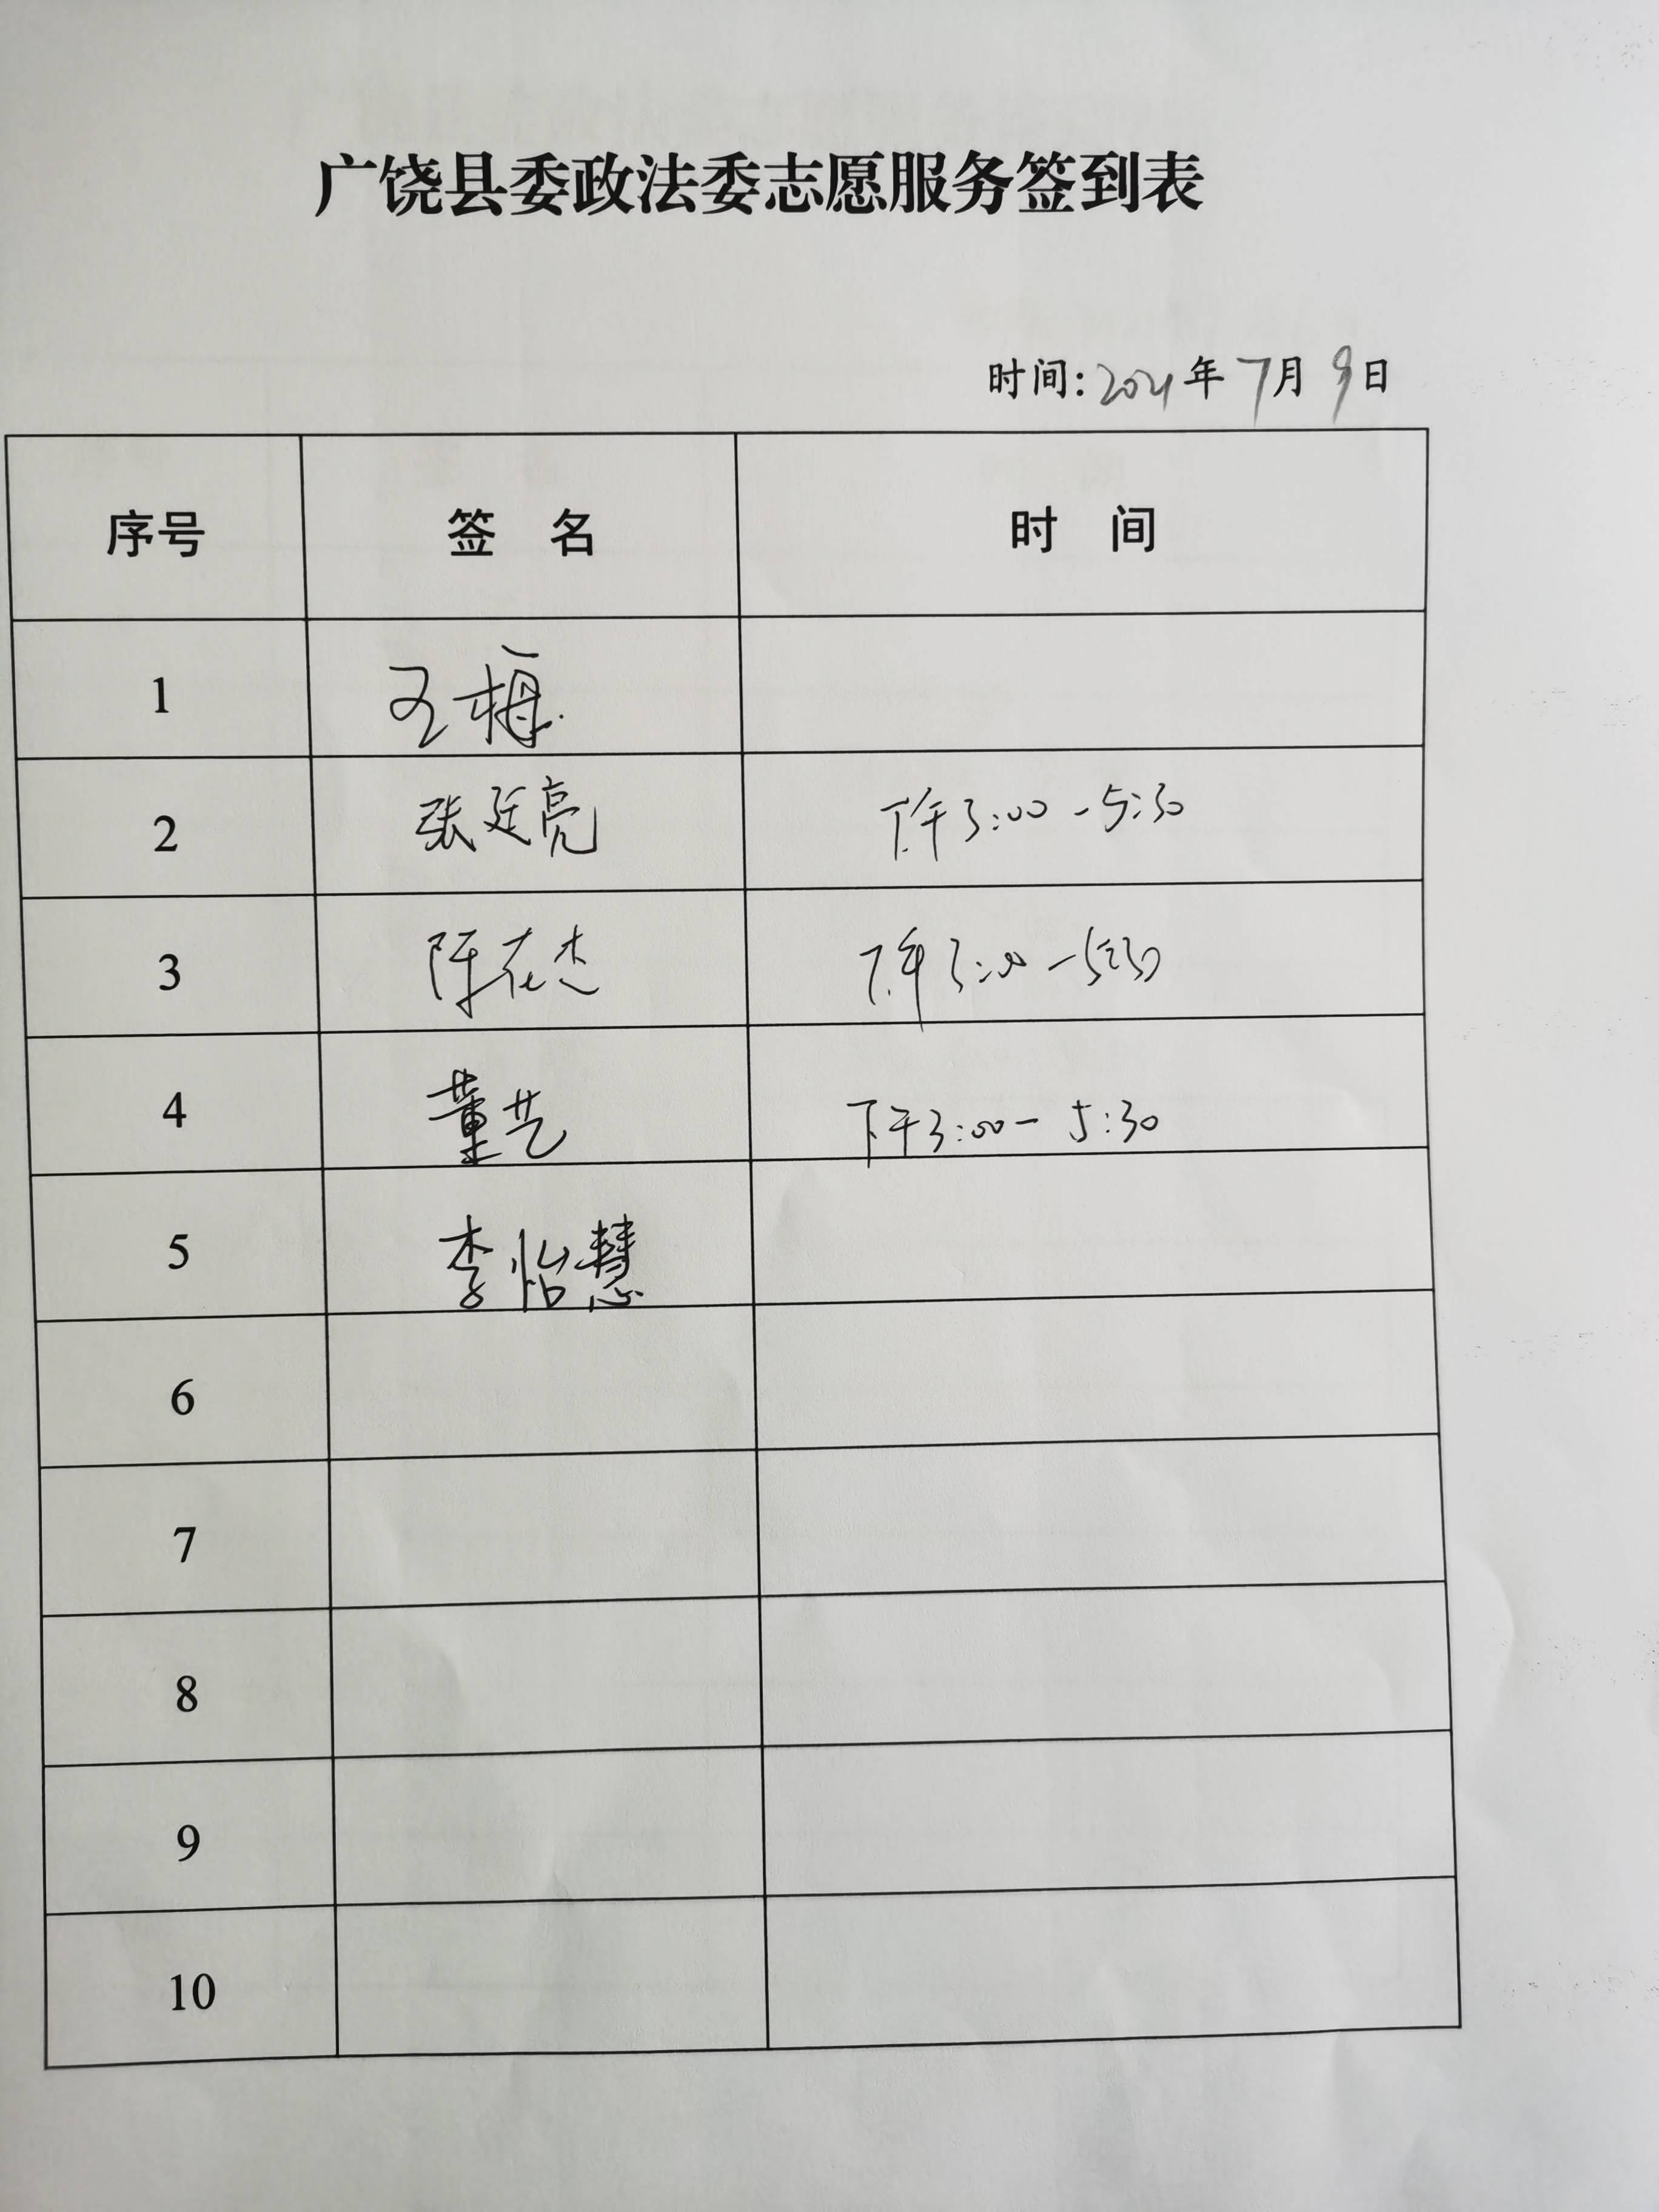 广饶县委政法委志愿服务签到表
时间: 2021年 7月 9日
序号 签 名 时 间
1 王梅
2 张廷亮 下午3:00-5:30
3 陈在杰 下午3:00-5:30
4 董艺 下午3:00-5:30
5 李怡慧
6
7
8
9
10